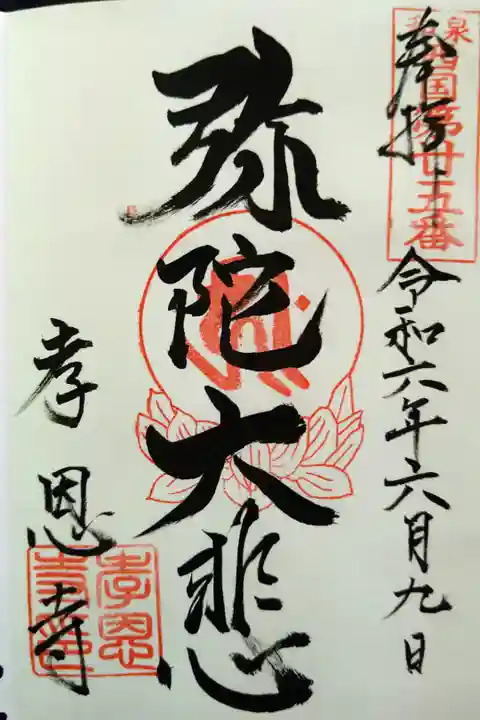 和泉
西国第廿五番
奉拝 令和六年六月九日
弥陀大悲
孝恩寺
孝恩
寺